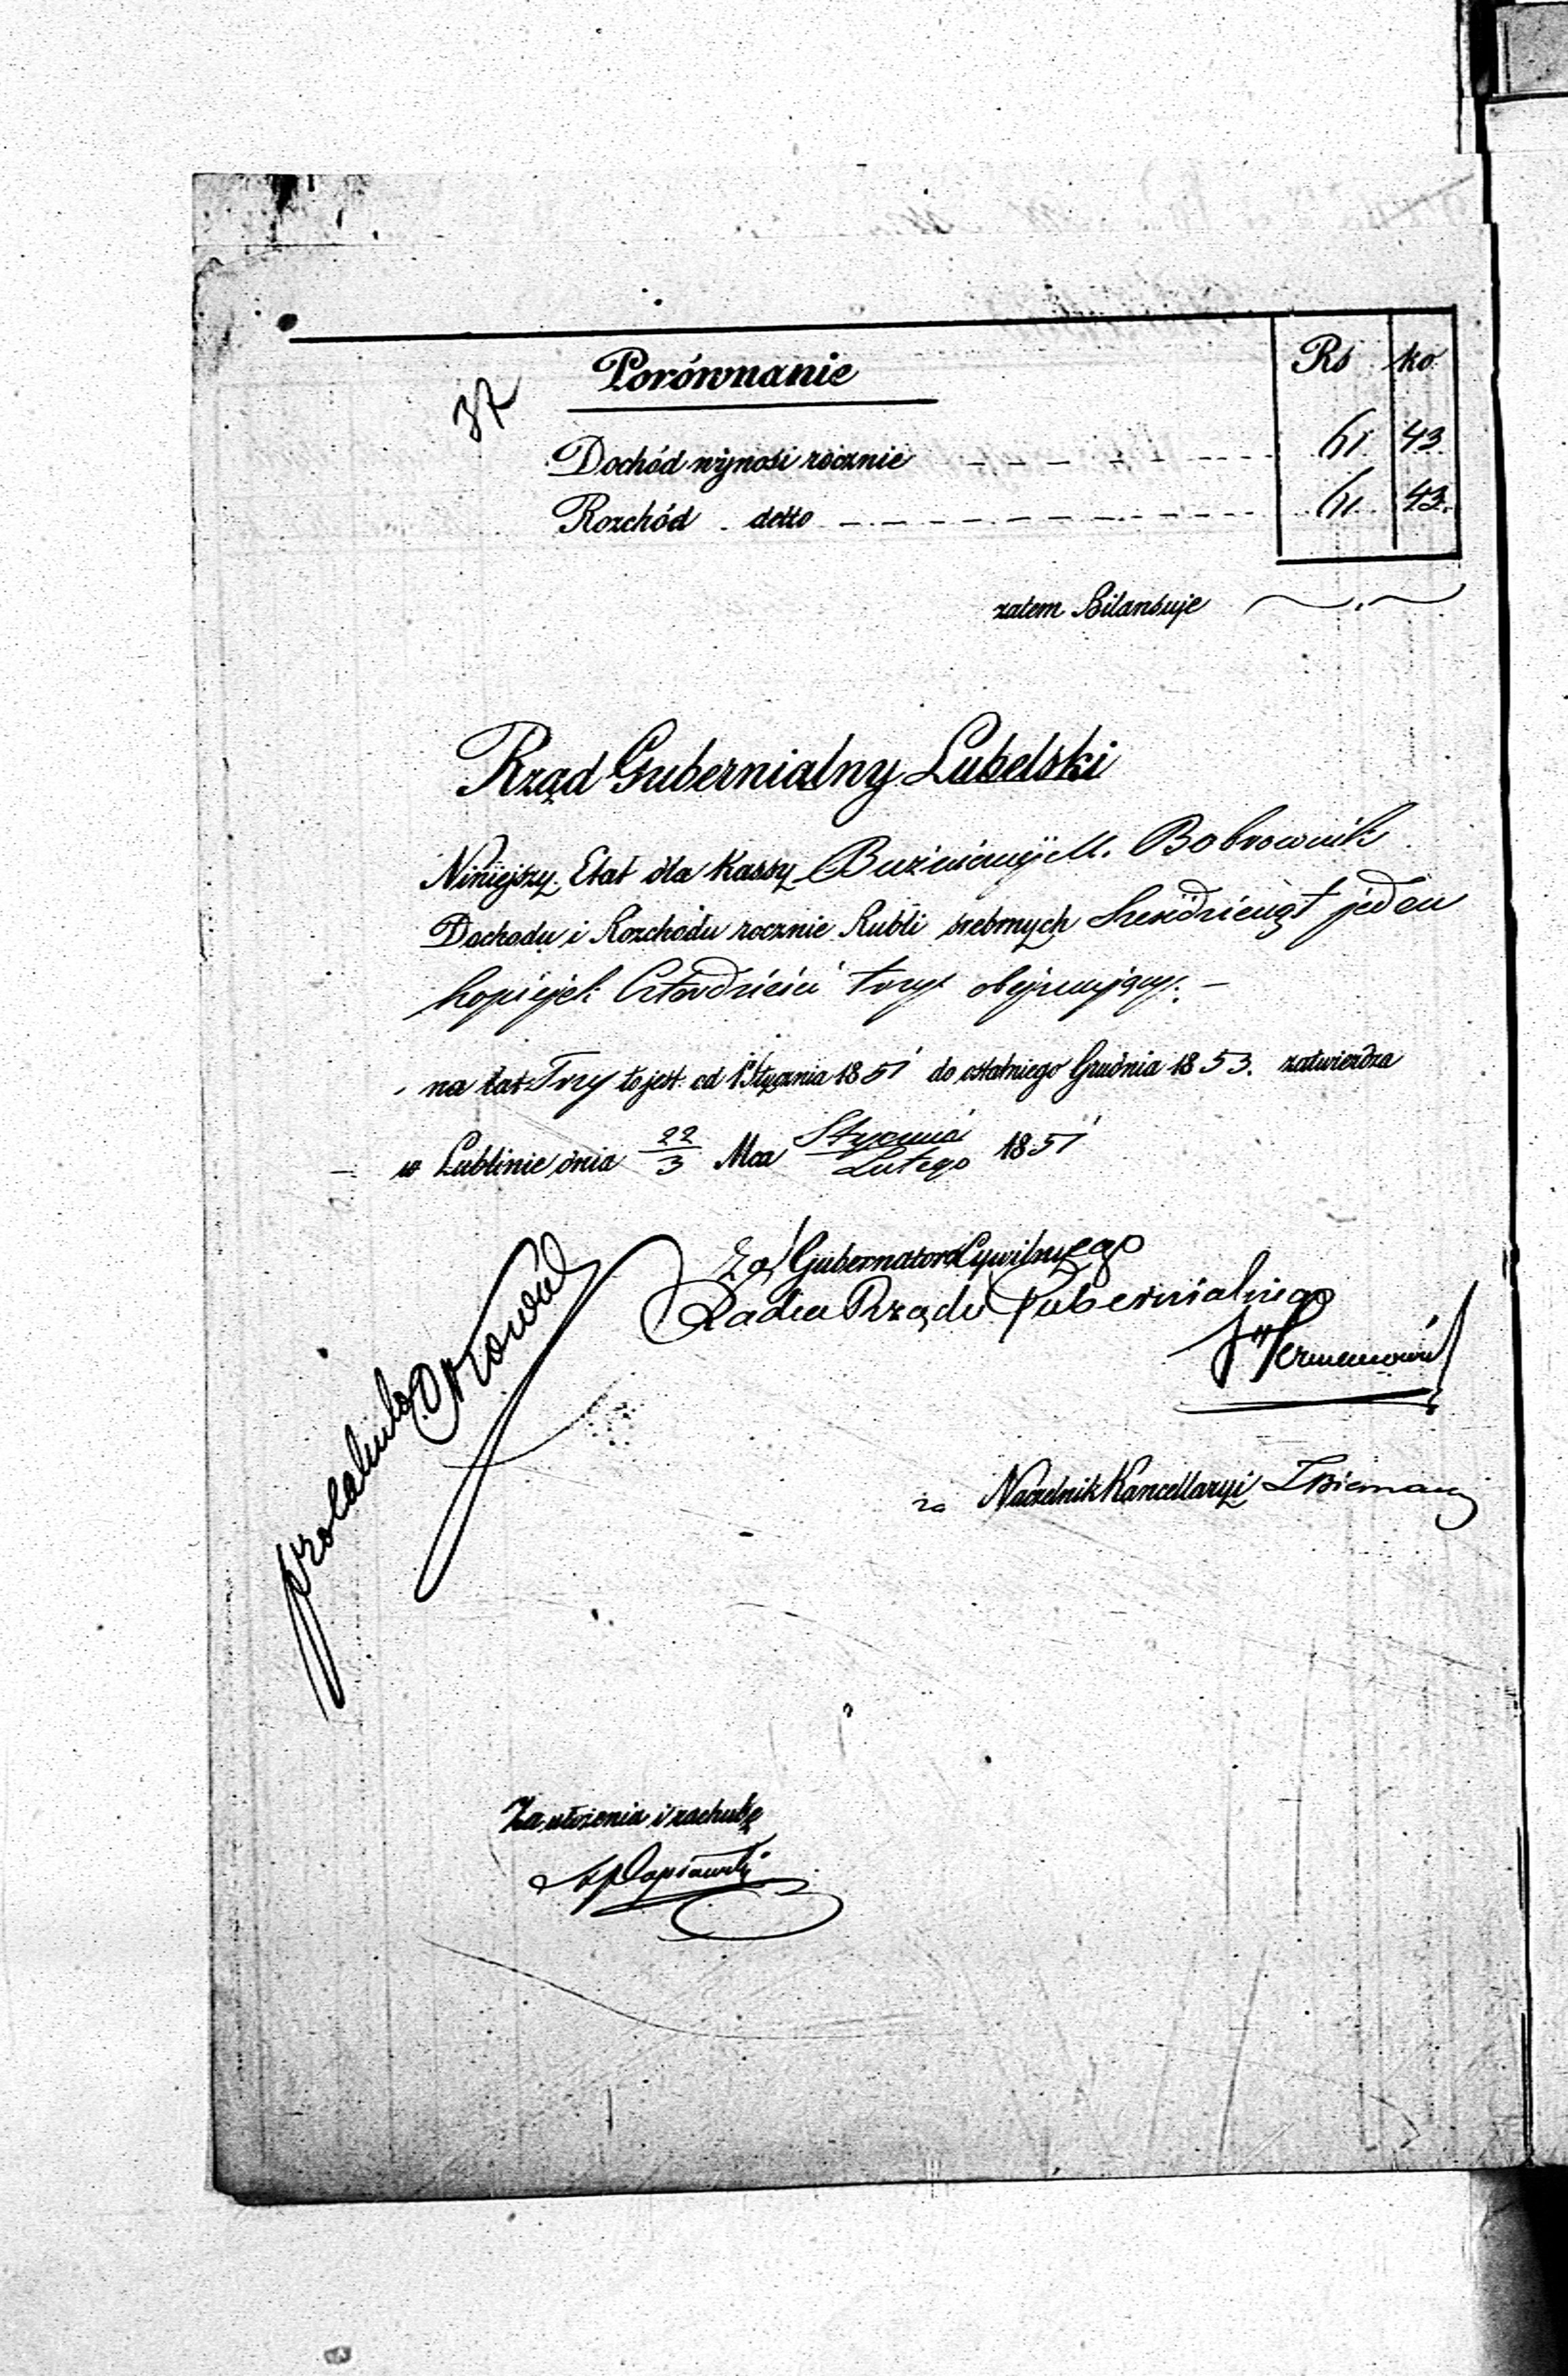 Porównanie
Rs ko
37
Dochód wynosi rocznie 61 43.
Rozchód detto 61 43.
zatem Bilansuje
Rząd Gubernialny Lubelski
Niniejszy Etat dla Kassy Bużniczney M. Bobrownik
Dochodu i Rozchodu rocznie Rubli srebrnych Sześdziesiąt jeden
kopiejek Czterdzieści trzy obejmujący. –
na lat Trzy to jest od 1 Stycznia 1851 do ostatniego Grudnia 1853. zatwierdza
w Lublinie dnia 22/3 Mca Stycznia/Lutego 1851
za Gubernatora Cywilnego
Radca Rządu Gubernialnego
za Naczelnik Kancellaryi
Za ułożenia i rachubę